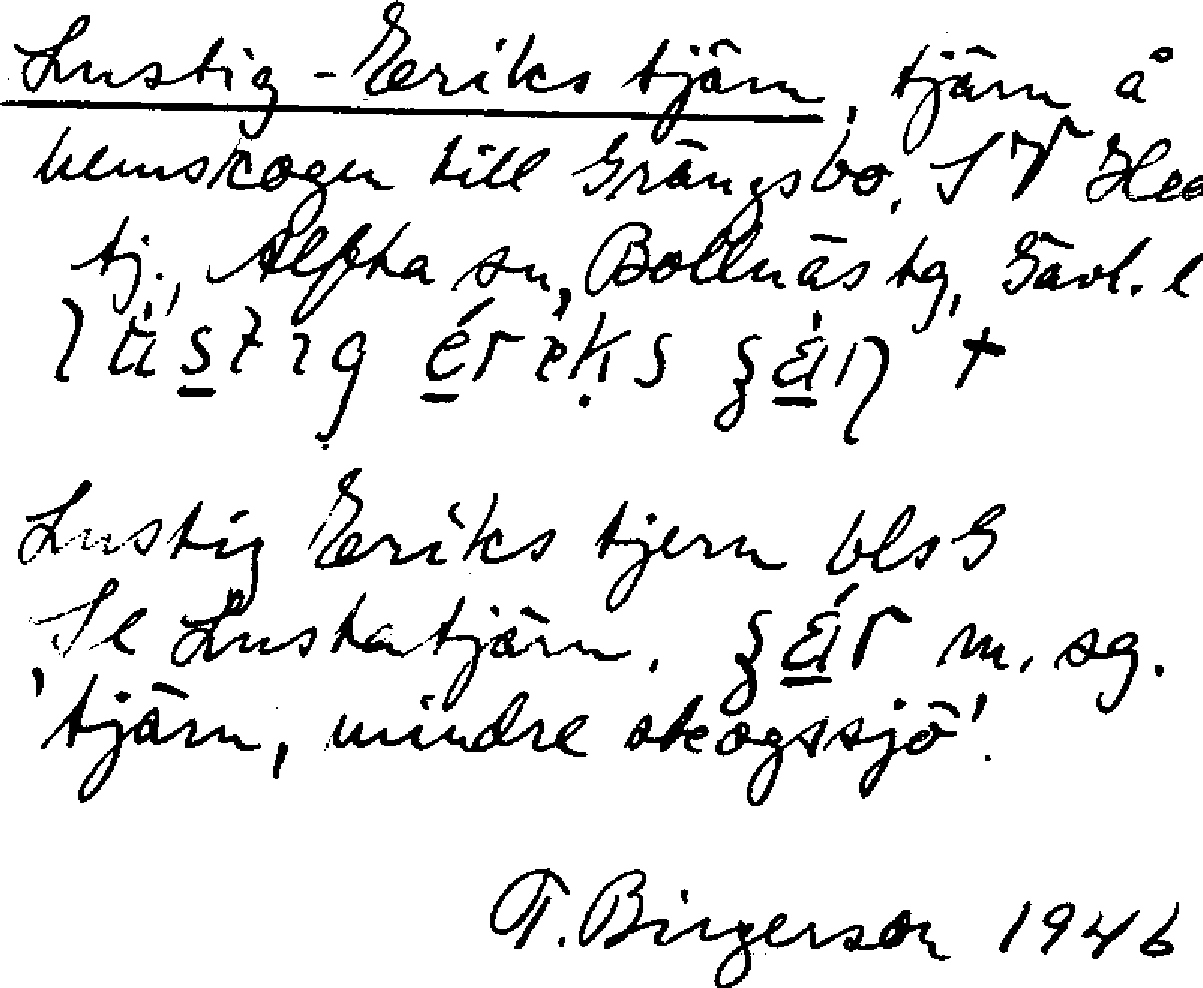 Lustig-Eriks tjärn, tjärn å
hemskogen till Grängsbo, SV Hed
tj., Alfta sn, Bollnäs tg, Gävl. l
Lustig Eriks tjern blsG
Se Lustatjärn. m. sg.
'tjärn, mindre skogssjö'.
T. Birgerson 1946